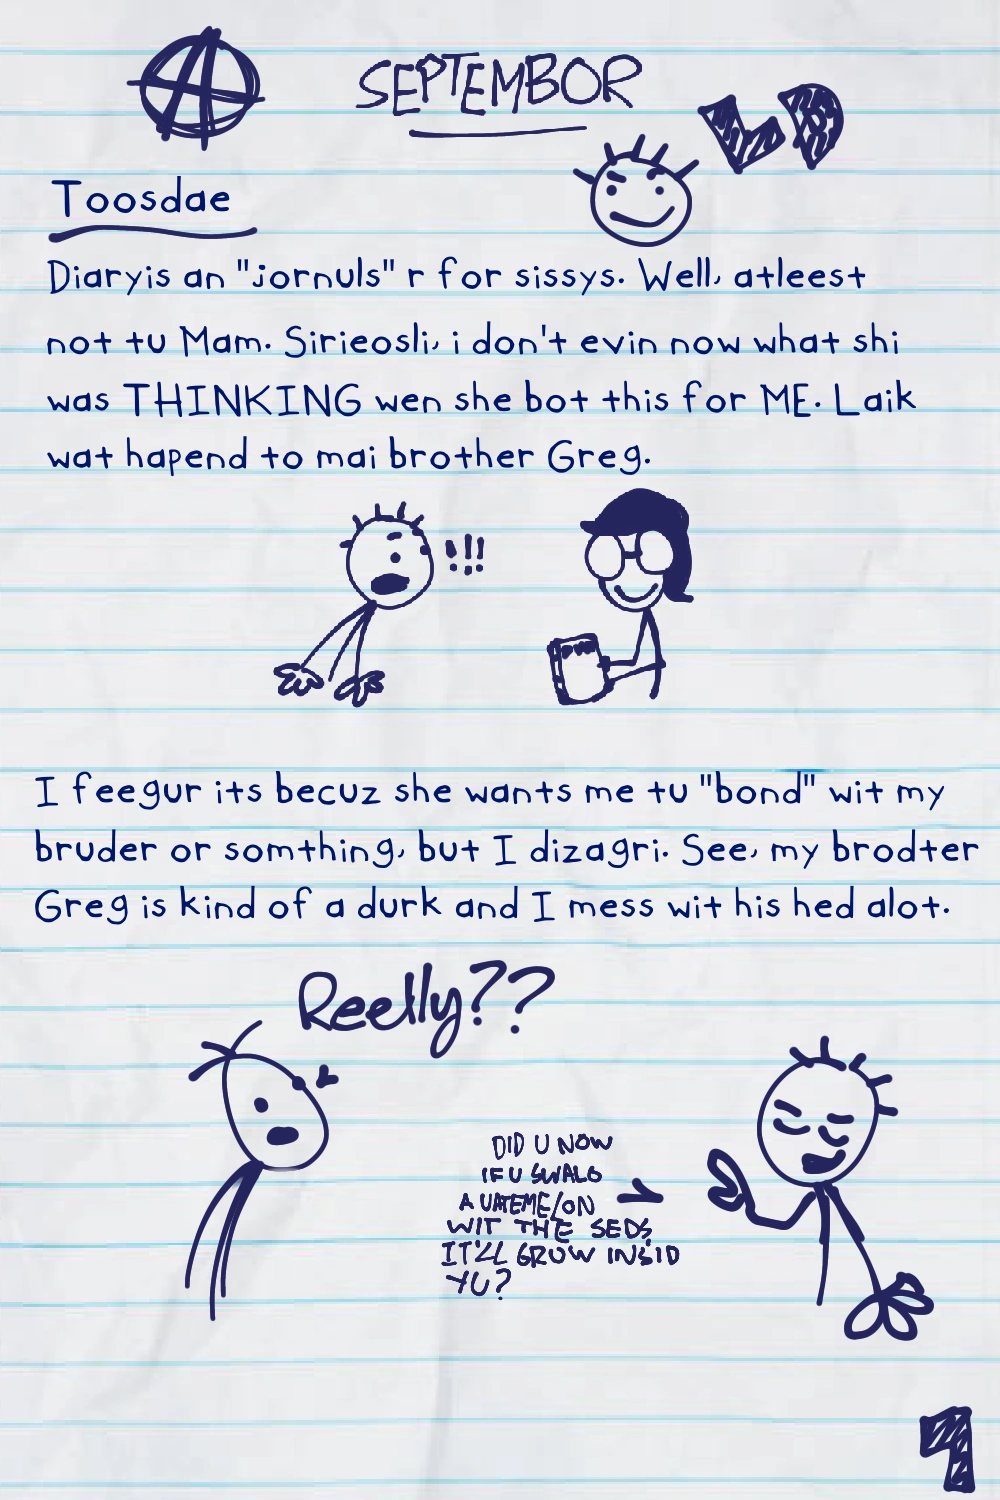 A
SEPTEMBOR
LB
Toosdae
Diaryis an "jornuls" r for sissys. Well, atleest
not tu Mam. Sirieosli, i don't evin now what shi
was THINKING wen she bot this for ME. Laik
wat hapend to mai brother Greg.
!!!!
I feegur its becuz she wants me tu "bond" wit my
bruder or somthing, but I dizagri. See, my brodter
Greg is kind of a durk and I mess wit his hed alot.
Reelly??
DID U NOW
IF U SWALO
A UATEMELON
WIT THE SEDS
IT'LL GROW INSID
YU?
1